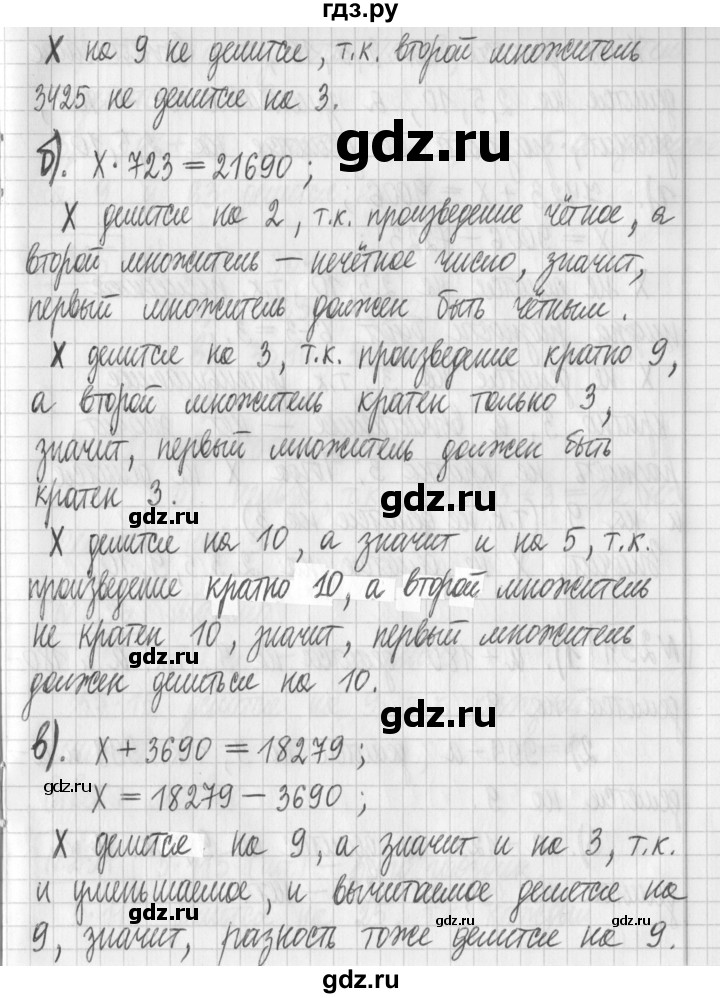 гдз.ру
X на 9 не делится, т.к. второй множитель
3425 не делится на 3.
gdz.ru
б). X · 723 = 21690 ;
X делится на 2, т.к. произведение чётное, а
gdz.ru
второй множитель – нечётное число, значит,
первый множитель должен быть чётным.
X делится на 3, т.к. произведение кратно 9,
а второй множитель кратен только 3,
значит, первый множитель должен быть
кратен 3.
gdz.ru
gdz.ru
X делится на 10, а значит и на 5, т.к.
произведение кратно 10, а второй множитель
не кратен 10, значит, первый множитель
gdz.ru
должен делиться на 10.
gdz.ru
в). X + 3690 = 18279 ;
gdz.ru
X = 18279 – 3690 ;
X делится на 9, а значит и на 3, т.к.
и уменьшаемое, и вычитаемое делется на
gdz.ru
gdz.ru
9, значит, разность тоже делится на 9.
gdz.ru